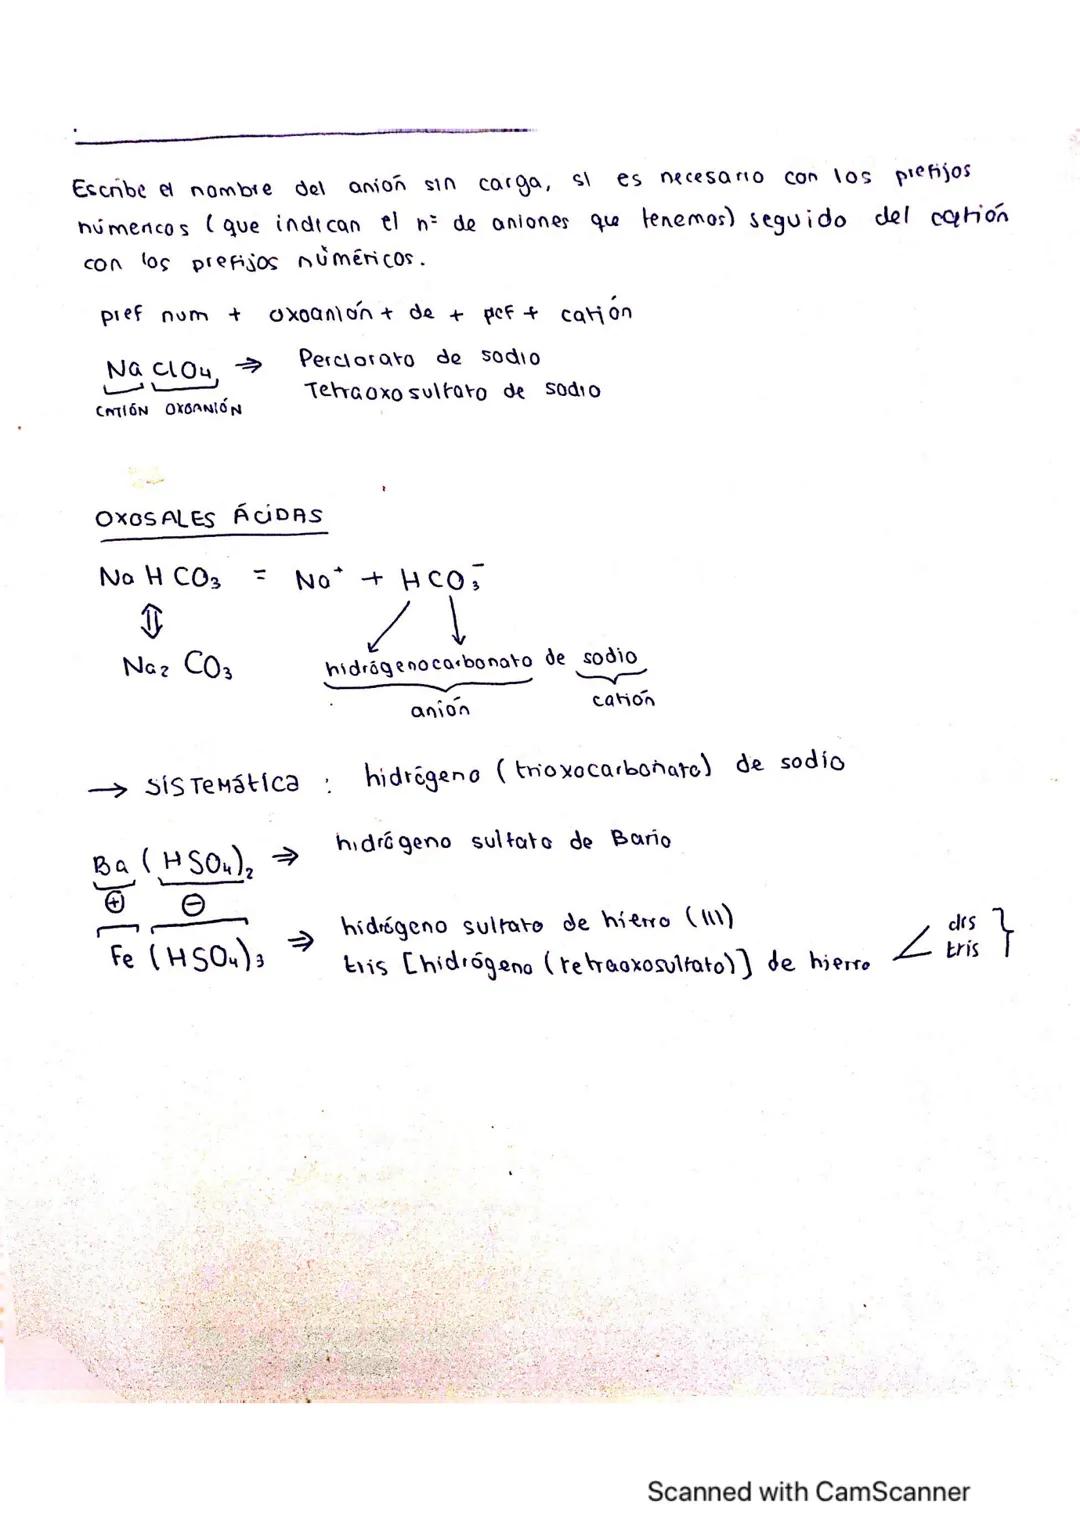 Escribe el nombre del anión sin carga, si es necesario con los prefijos
númericos (que indican el nº de aniones que tenemos) seguido del catión
con los prefijos númericos.
pref num + oxoanión + de + pef + catión
NaClO4 ⇒ Perclorato de sodio
Tetraoxosulfato de sodio
CATIÓN OXOANIÓN
OXOSALES ÁCIDAS
NaHCO3 = Na+ + HCO3-
⇕
Na2CO3 hidrógenocarbonato de sodio
anión catión
→ SISTEMática : hidrógeno (trioxocarbonato) de sodio
Ba(HSO4)2 ⇒ hidrógeno sulfato de Bario
⊕ ⊖
Fe(HSO4)3 ⇒ hidrógeno sulfato de hierro (III)
tris [hidrógeno (tetraoxosulfato)] de hierro < dis tris }
Scanned with CamScanner